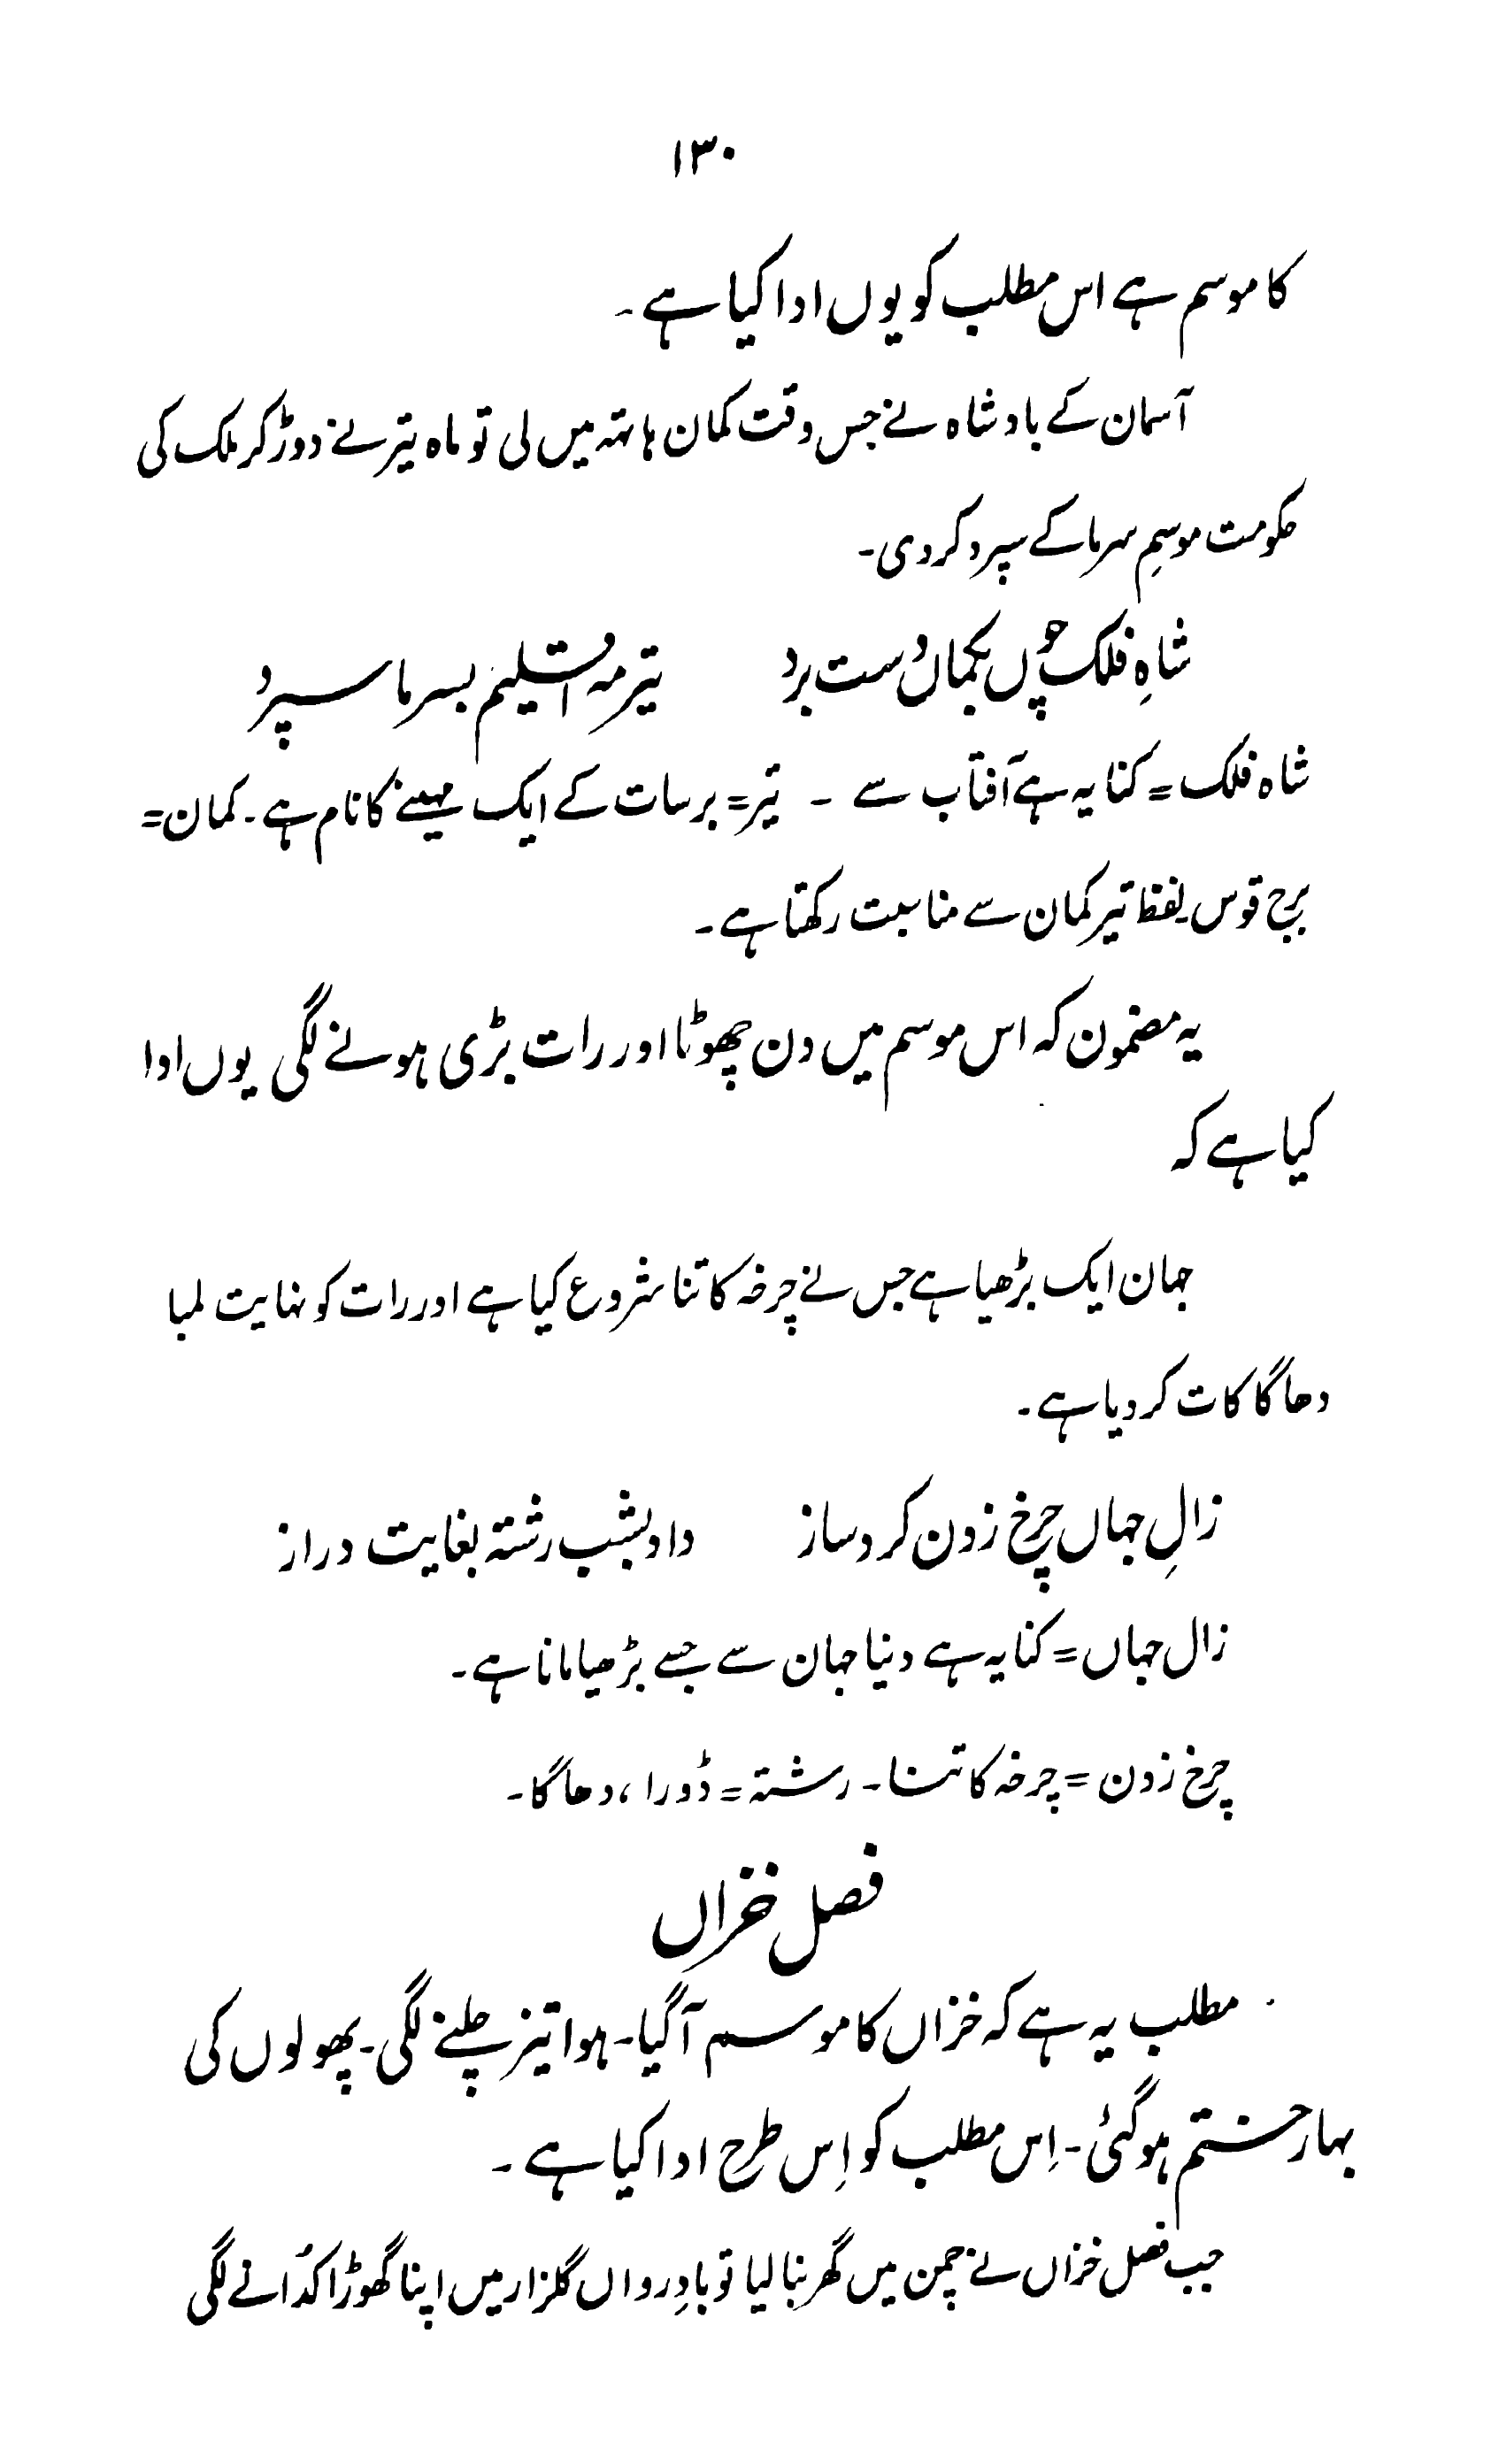 ۱۳۰
کا موسم ہے اس مطلب کو یوں ادا کیا ہے۔
آسمان کے بادشاہ نے جس وقت کمان ہاتھ میں لی تو ماہ تیر نے دوڑ کر ملک کی
حکومت موسمِ سرما کے سپرد کر دی۔
شاہِ فلک چُوں بکماں دست برد تیر مہ اقلیم بسرما سپرد
شاہ فلک = کنایہ ہے آفتاب سے ۔ تیر = برسات کے ایک مہینے کا نام ہے۔ کمان =
برج قوس لفظ تیر کمان سے مناسبت رکھتا ہے۔
یہ مضمون کہ اس موسم میں دن چھوٹا اور رات بڑی ہونے لگی یوں ادا
کیا ہے کہ
جہان ایک بڑھیا ہے جس نے چرخہ کاتنا شروع کیا ہے اور رات کو نہایت لمبا
دھاگا کات کر دیا ہے۔
زالِ جہاں چرخ زدن کرد ساز داد بشب رشتہ بغایت دراز
زال جہاں = کنایہ ہے دنیا جہان سے جسے بڑھیا مانا ہے۔
چرخ زدن = چرخہ کاتنا۔ رشتہ = ڈورا، دھاگا۔
فصل خزاں
مطلب یہ ہے کہ خزاں کا موسم آگیا۔ ہوا تیز چلنے لگی۔ پھولوں کی
بہار ختم ہو گئی۔ اِس مطلب کو اِس طرح ادا کیا ہے۔
جب فصل خزاں نے چمن میں گھر بنا لیا تو بادِ رواں گلزار میں اپنا گھوڑا کدانے لگی